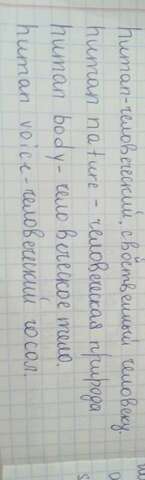 human-человеческий, свойственный человеку.
human nature - человеческая природа
human body - человеческое тело.
human voice-человеческий госол.